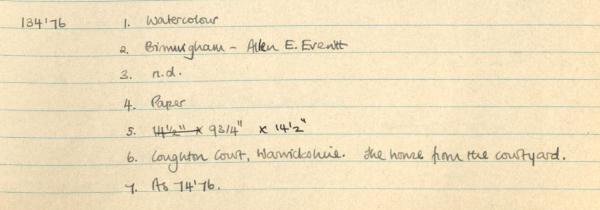 134'76 1. Watercolour
2. Birmingham - Allen E. Everitt
3. n.d.
4. Paper
5. 14½" x 9 3/4" x 14½"
6. Coughton Court, Warwickshire. The house from the courtyard.
7. As 74'76.